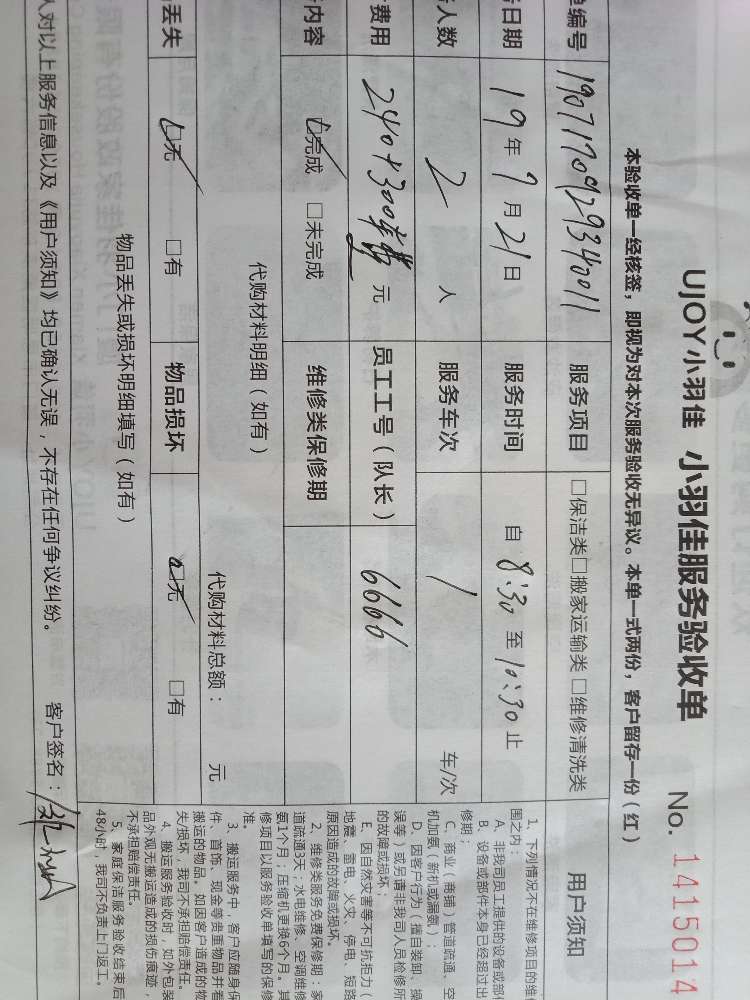 UJOY小羽佳 小羽佳服务验收单 No. 1415014
本验收单一经核签，即视为对本次服务验收无异议。本单一式两份，客户留存一份（红）
单编号 1907170929340011 服务项目 □保洁类□搬家运输类□维修清洗类
日期 19年7月21日 服务时间 自 8:30 至 10:30 止
人数 2 人 服务车次 1 车/次
费用 240+300 元 员工工号（队长） 6666
内容 □完成 □未完成 维修类保修期
代购材料明细（如有）
代购材料总额： 元
丢失 □无 □有 物品损坏 □无 □有
物品丢失或损坏明细填写（如有）
人对以上服务信息以及《用户须知》均已确认无误，不存在任何争议纠纷。 客户签名：
用户须知
1、下列情况不在维修项目的维
围之内：
A、非我司员工提供的设备或部
B、设备或部件本身已经超过出
修期；
C、商业（商铺）管道疏通、空
机加氨（新机或漏氨）；
D、因客户行为（擅自装制、操
误等）或另请非我司人员检修所
的故障或损坏；
E、因自然灾害等不可抗拒力（
地震、雷电、火灾、停电、短路
原因造成的故障或损坏。
2、维修类服务免费保修期：家
道疏通3天；水电维修、空调维修
氨1个月；压缩机更换6个月。其
修项目以服务验收单填写的保修
准。
3、搬运服务中，客户应随身保
件、首饰、现金等贵重物品并看
搬运的物品。如因客户造成的物
失/损坏，我司不承担赔偿责任。
4、搬运服务验收时，如外包装
品外观无搬运造成的损伤痕迹，
不承担赔偿责任。
5、家庭保洁服务验收结束后
48小时，我司不负责上门返工。